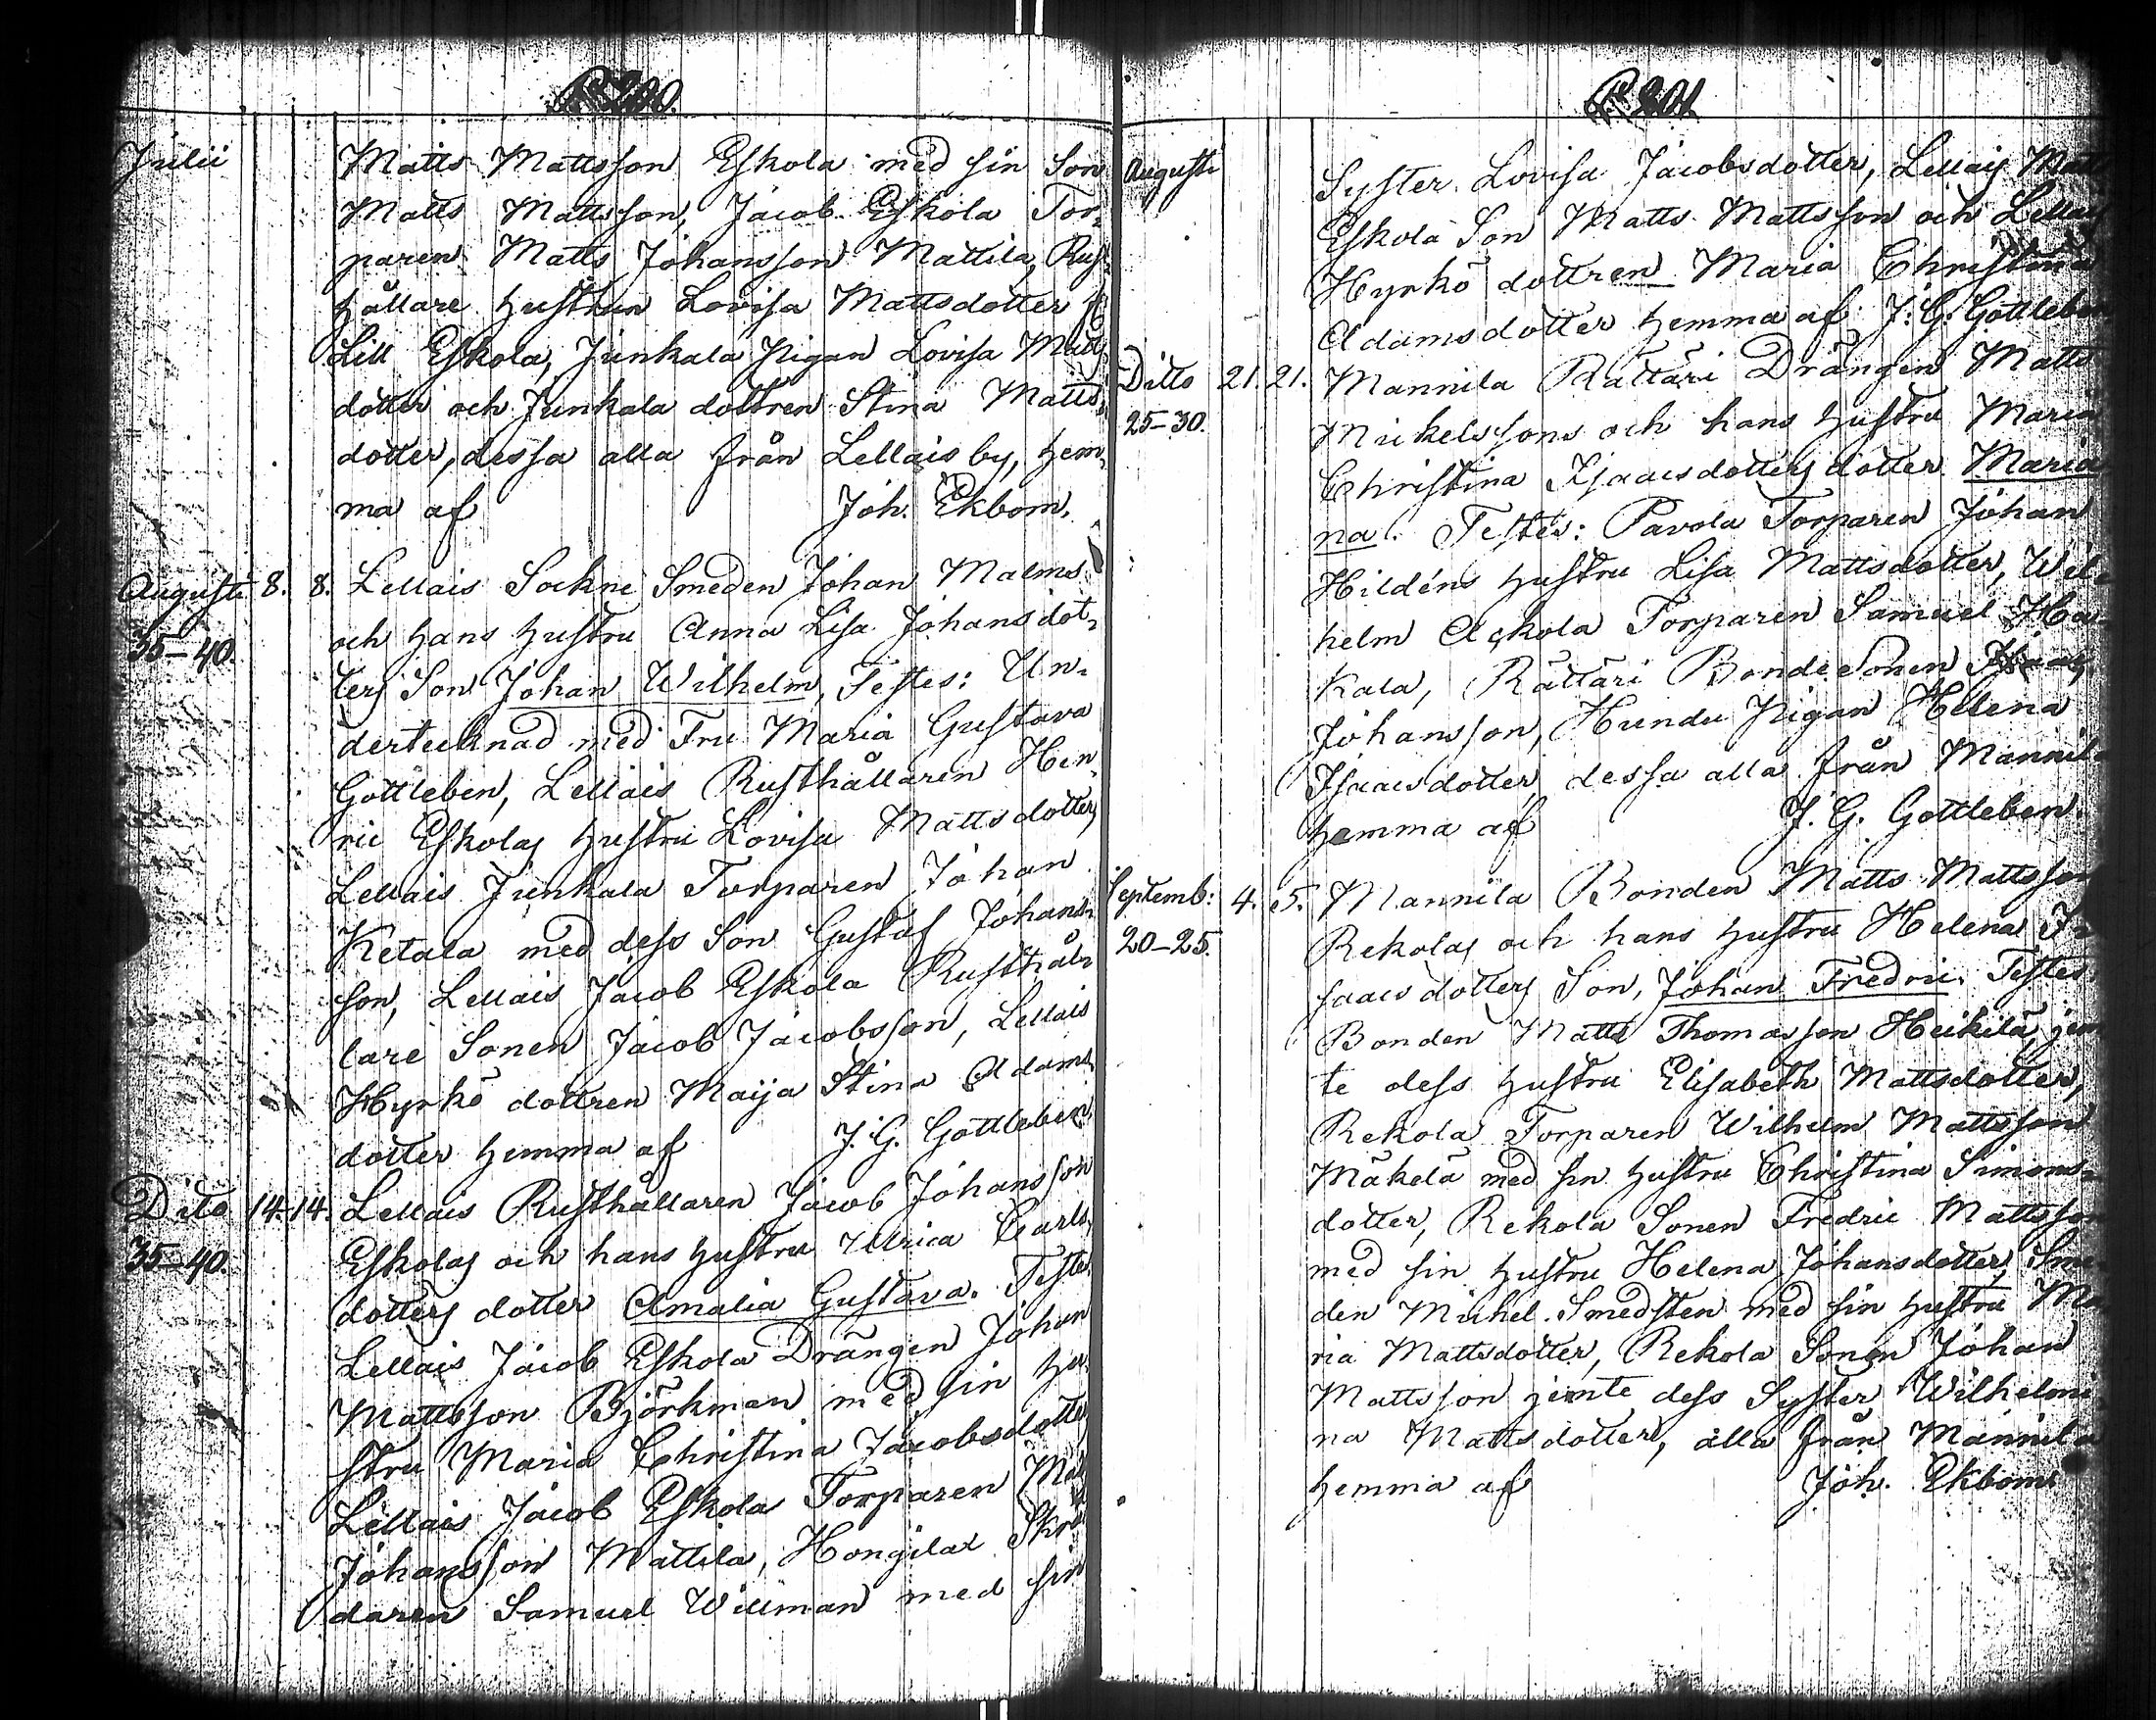 P. 200.
Julii Matts Mattsson Eskola med sin Son
Matts Mattsson, Jacob Eskola Tor-
paren Matts Johansson Mattila, Rust-
hållare hustrun Lovisa Mattsdotter fr
Lill Eskola, Junkala Pigan Lovisa Matts
dotter och Junkala dottren Stina Matts-
dotter, dessa alla från Lellais by, hem-
ma af Joh. Ekbom.
Augusti 8. 8. Lellais Sockne Smeden Johan Malms
och hans hustru Anna Lisa Johansdot-
35–40. ters Son Johan Wilhelm, Testes: Un-
dertecknad med Fru Maria Gustava
Gottleben, Lellais Rusthållaren Hen-
ric Eskolas hustru Lovisa Mattsdotter,
Lellais Junkala Torparen Johan
Ketala med dess Son Gustaf Johans-
son, Lellais Jacob Eskola Rusthål-
lare Sonen Jacob Jacobsson, Lellais
Hyrkö dottren Maija Stina Adams
dotter hemma af J. G. Gottleben
Dito 14. 14. Lellais Rusthållaren Jacob Johansson
35–40. Eskolas och hans hustru Ulrica Carls
dotters dotter Amalia Gustava. Testes
Lellais Jacob Eskola Drängen Johan
Mattsson Björkman med sin hu-
stru Maria Christina Jacobsdotter
Lellais Jacob Eskola Torparen
Johansson Mattila, Hongilax Skräd
daren Samuel Willman med sin
P. 201.
Augusti Syster Lovisa Jacobsdotter, Lellais Matts
Eskola Son Matts Mattsson och Lellais
Hyrkö dottren Maria Christina
Adamsdotter hemma af J. G. Gottleben
Ditto 21. 21. Mannila Rättäri Drängen Matts
25–30. Mickelssons och hans hustru Maria
Christina Isaacsdotters dotter Maria
na. Testes: Pavola Torparen Johan
Hildéns hustru Lisa Mattsdotter, Wil-
helm Ackola Torparen Samuel Ha-
kala, Rättäri Bonde Sonen Isaac
Johansson, Hundu Pigan Helena
Isaacsdotter dessa alla från Mannila
hemma af J. G. Gottleben.
Septemb: 4. 5. Mannila Bonden Matts Mattsson
20–25. Rekolas och hans hustru Helena I-
saacsdotters Son, Johan Fredric. Testes
Bonden Matts Thomasson Heikilä jem-
te dess hustru Elisabeth Mattsdotter,
Rekola Torparen Wilhelm Mattsson
Mäkelä med sin hustru Christina Simons-
dotter, Rekola Sonen Fredric Mattsson
med sin hustru Helena Johansdotter, Sme-
den Michel Smedsten med sin hustru Ma
ria Mattsdotter, Rekola Sonen Johan
Mattsson jemte dess Syster Wilhelmi
na Mattsdotter, alla från Mannila
hemma af Joh. Ekbom